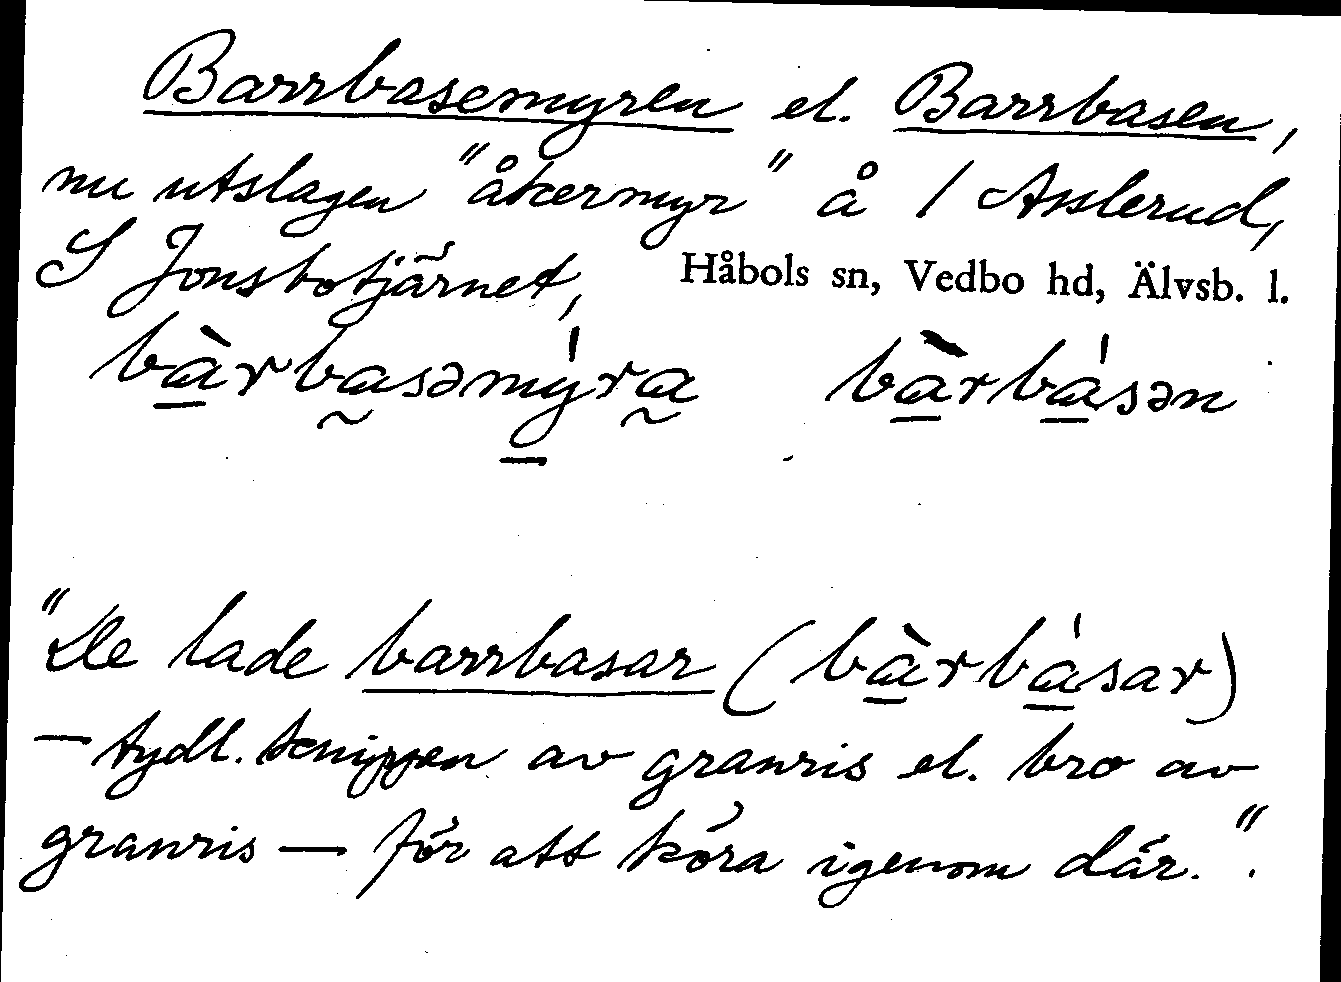 Barrbasemyren el. Barrbasen,
nu utslagen "åkermyr" å 1 Asslerud,
S Jonsbotjärnet, Håbols sn, Vedbo hd, Älvsb. l.
bàrbasəmýra bàrbásən
"De lade barrbasar (bàrbásar)
– tydl. knippen av granris el. bro av
granris – för att köra igenom där.".